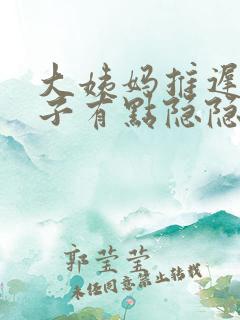 大姨妈推遲
子有點隐隐
郭莹莹
未经同意禁止转载